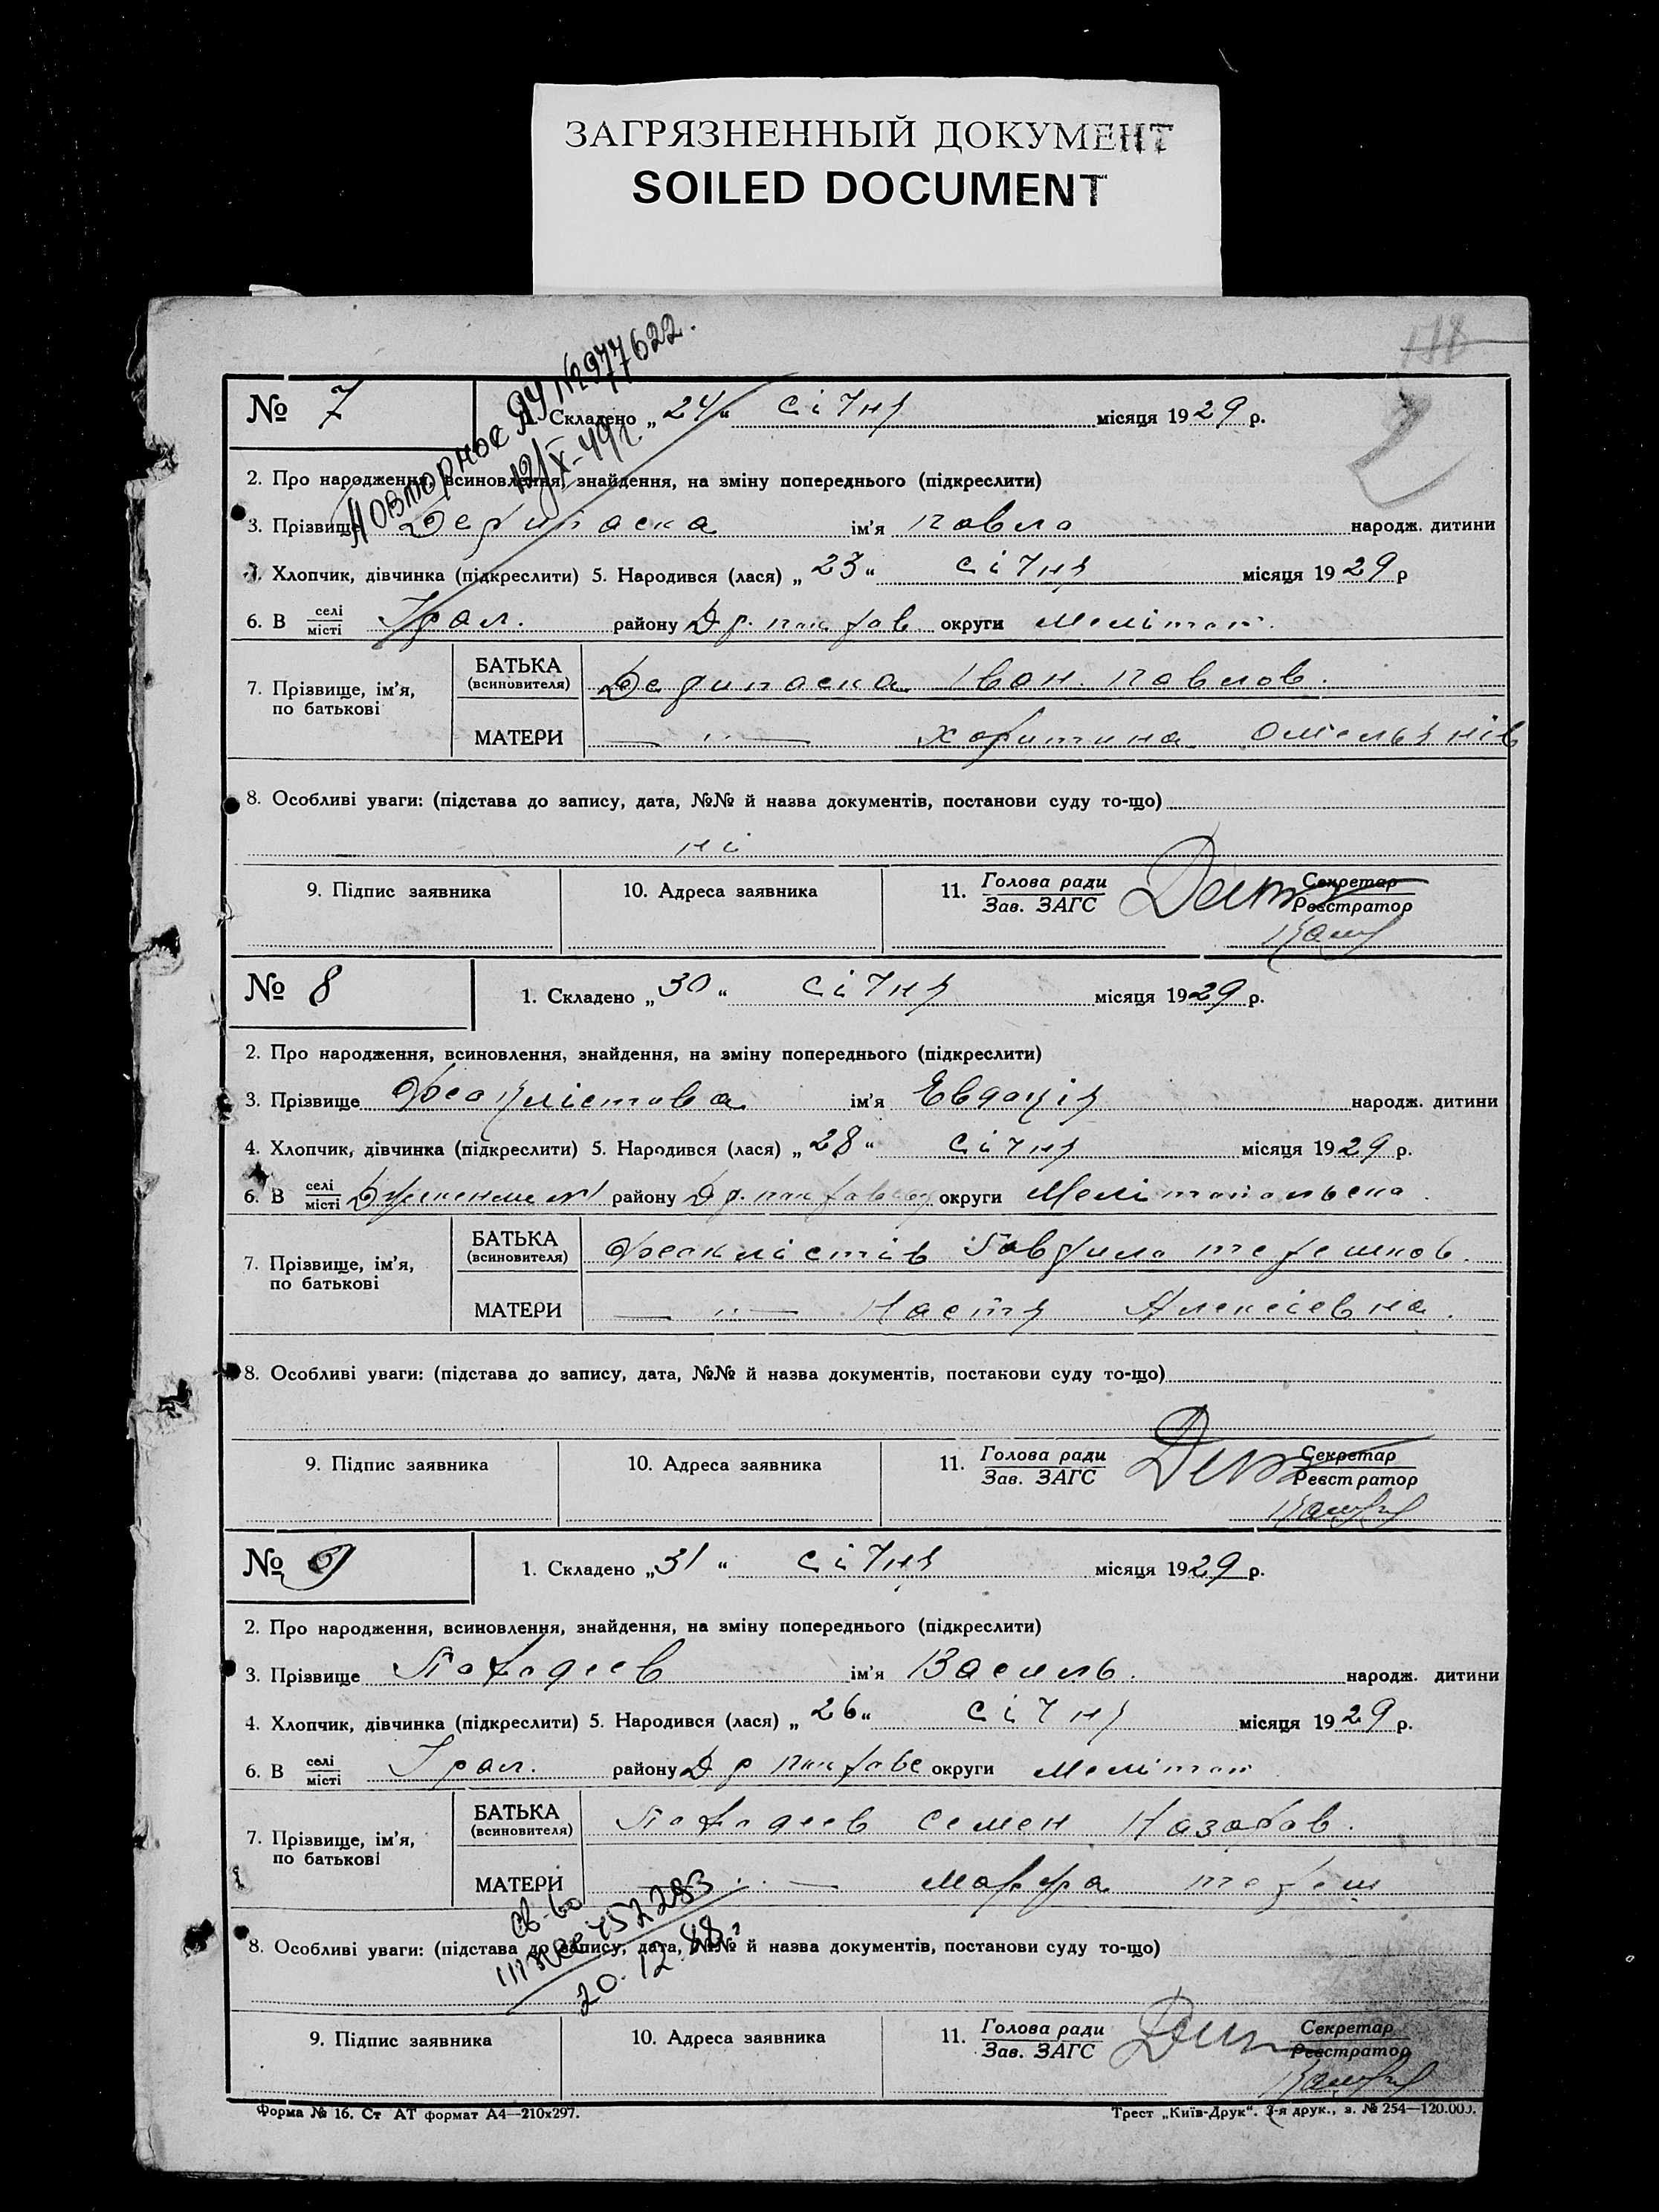 ЗАГРЯЗНЕННЫЙ ДОКУМЕНТ
SOILED DOCUMENT
Повторное ЯЧ №977622.
12/X-49г.
№ 7
1. Складено „24“ січня місяця 1929 р.
2. Про народження, всиновлення, знайдення, на зміну попереднього (підкреслити)
3. Прізвище Дерипаска ім'я Павло народж. дитини
4. Хлопчик, дівчинка (підкреслити) 5. Народився (лася) „23“ січня місяця 1929 р
6. В селі/місті району округи Мелітоп.
7. Прізвище, ім'я, по батькові
БАТЬКА (всиновителя) Дерипаска Іван Павлов.
МАТЕРИ — " — Харитина Омельянів
8. Особливі уваги: (підстава до запису, дата, №№ й назва документів, постанови суду то-що)
ні
9. Підпис заявника 10. Адреса заявника 11. Голова ради/Зав. ЗАГС Секретар/Реєстратор
№ 8
1. Складено „30“ січня місяця 1929 р.
2. Про народження, всиновлення, знайдення, на зміну попереднього (підкреслити)
3. Прізвище Феоклістова ім'я Евдокія народж. дитини
4. Хлопчик, дівчинка (підкреслити) 5. Народився (лася) „28“ січня місяця 1929 р.
6. В селі/місті №1 району округи Мелітопольська.
7. Прізвище, ім'я, по батькові
БАТЬКА (всиновителя) Феоклістів Гаврило
МАТЕРИ — " — Настя Алексієвна.
8. Особливі уваги: (підстава до запису, дата, №№ й назва документів, постакови суду то-що)
9. Підпис заявника 10. Адреса заявника 11. Голова ради/Зав. ЗАГС Секретар/Реєстратор
№ 9
1. Складено „31“ січня місяця 1929 р.
2. Про народження, всиновлення, знайдення, на зміну попереднього (підкреслити)
3. Прізвище ім'я Василь. народж. дитини
4. Хлопчик, дівчинка (підкреслити) 5. Народився (лася) „26“ січня місяця 1929 р.
6. В селі/місті району округи Мелітоп
7. Прізвище, ім'я, по батькові
БАТЬКА (всиновителя) Семен Назаров.
МАТЕРИ — " — Марфа
св-во
452283
20.12.48
8. Особливі уваги: (підстава до запису, дата, №№ й назва документів, постанови суду то-що)
9. Підпис заявника 10. Адреса заявника 11. Голова ради/Зав. ЗАГС Секретар/Реєстратор
Форма № 16. Ст АТ формат А4—210х297. Трест „Київ-Друк“. 3-я друк., з. № 254—120.000.